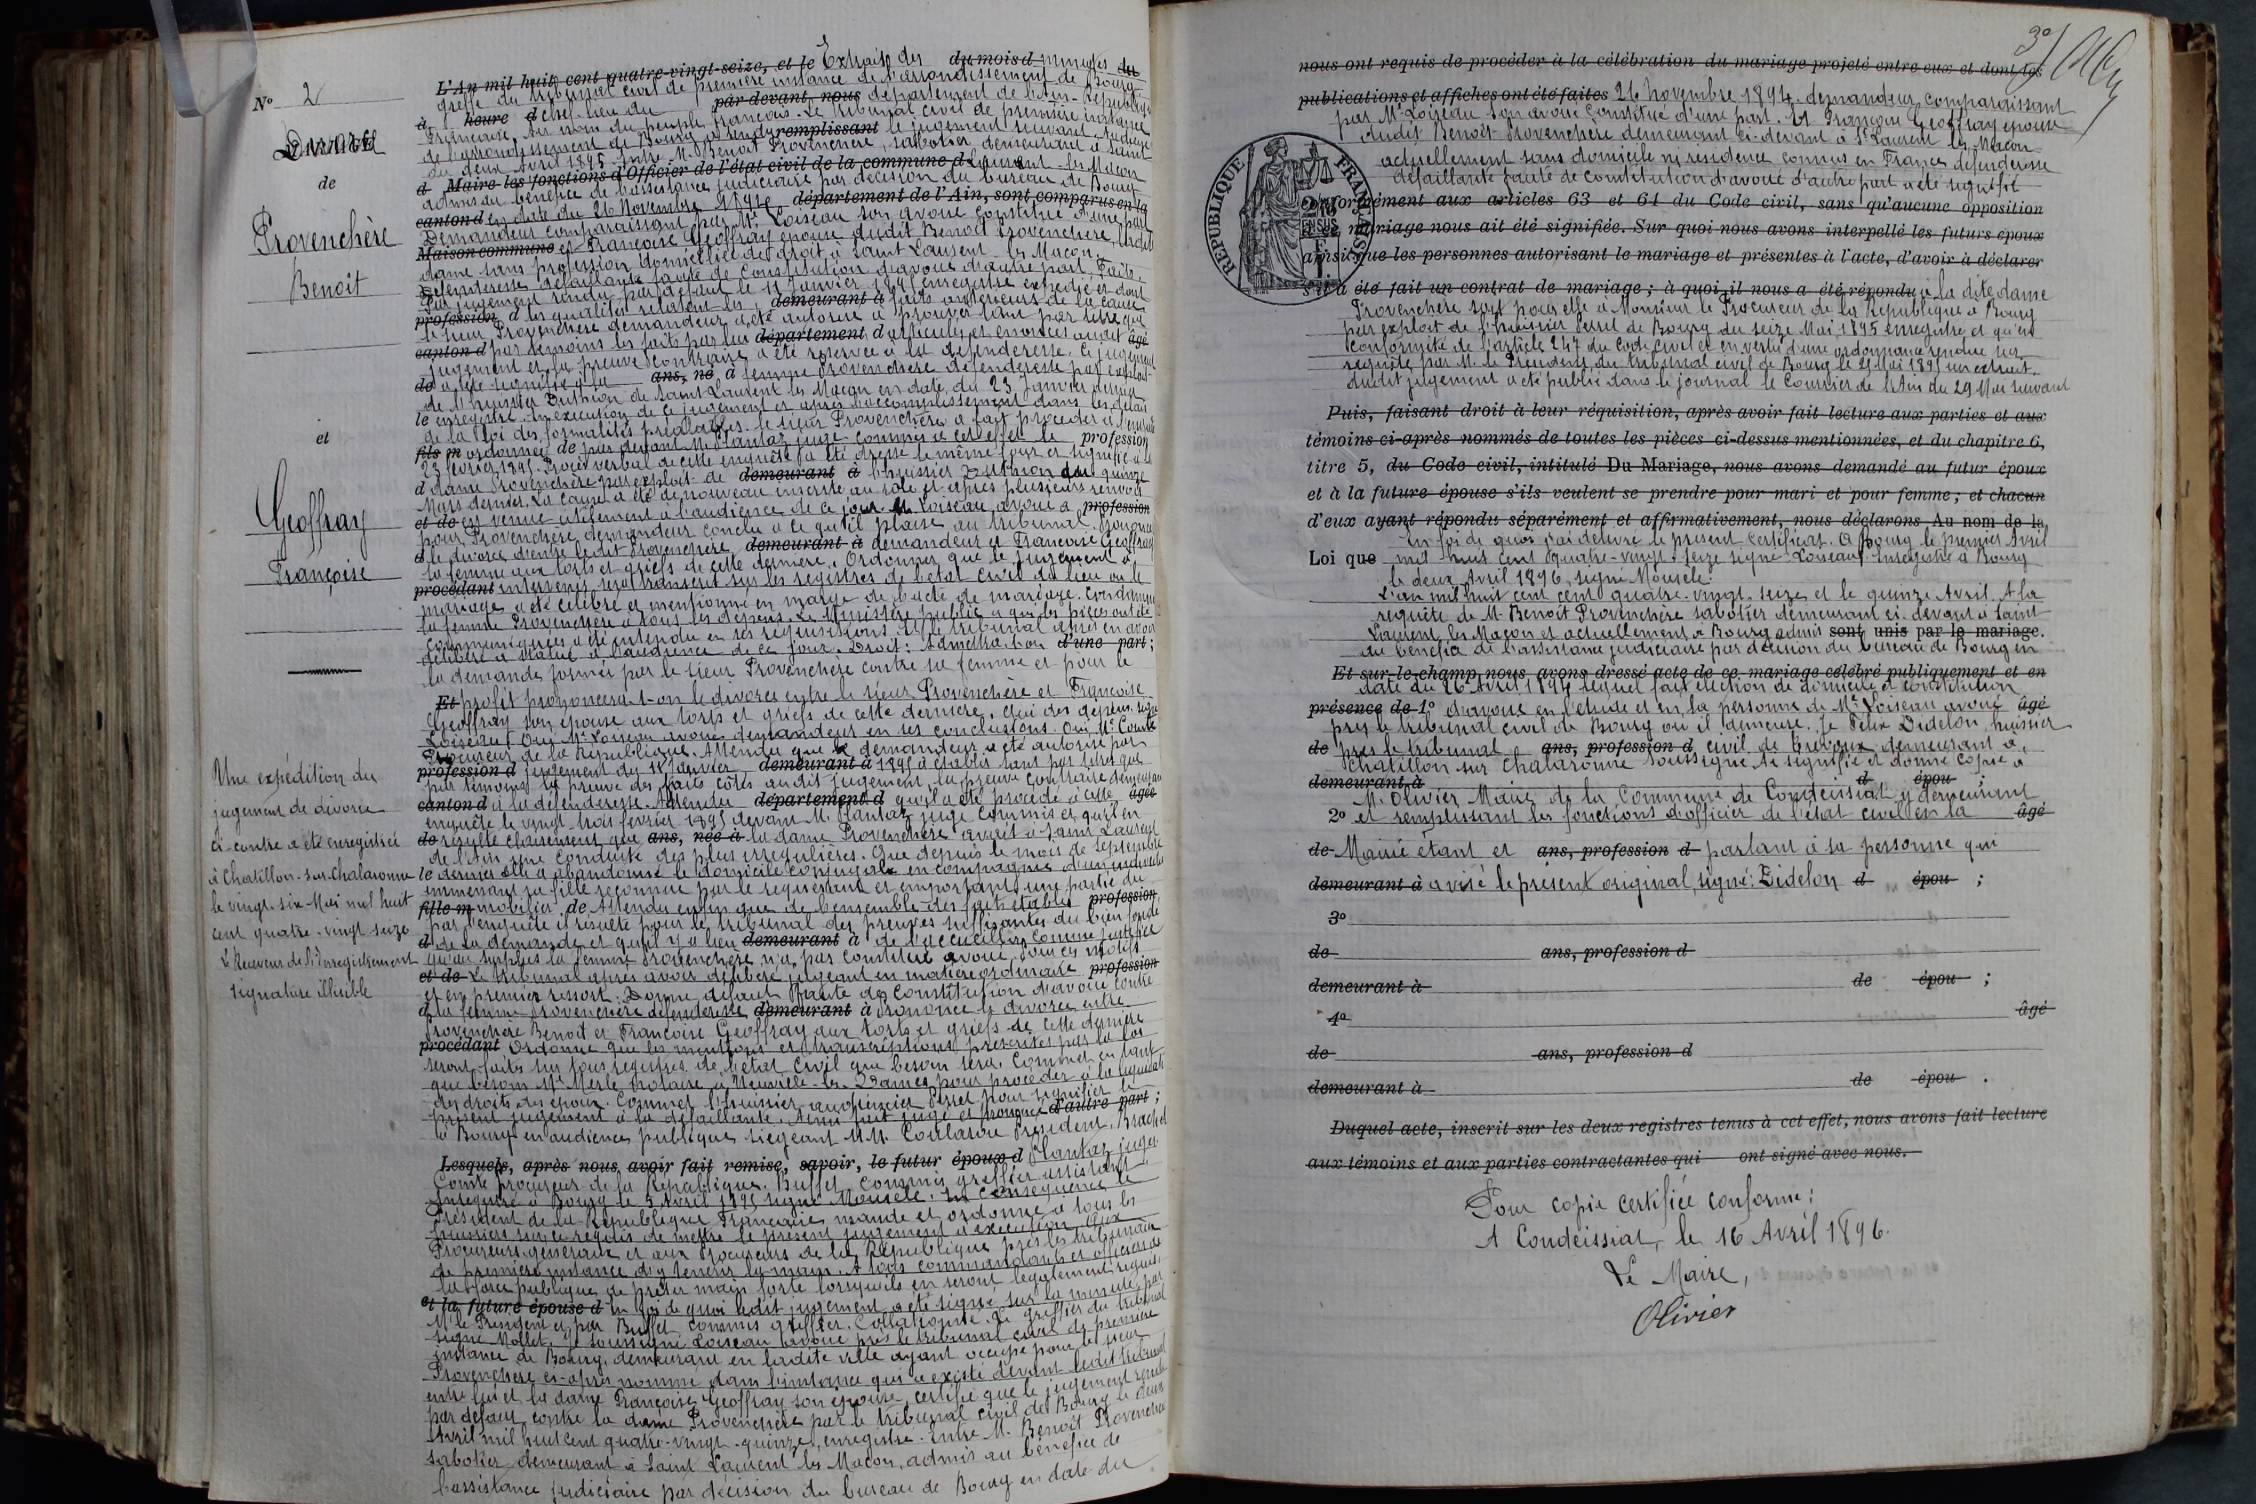 Nº 2
Divorce
de
Provenchère
Benoit
et
Geoffray
Françoise
Une expédition du
jugement de divorce
ci-contre a été enregistrée
à Chatillon-sur-Chalaronne
le vingt-six Mai mil huit
cent quatre-vingt-seize
Le Receveur de l'Enregistrement
signature illisible
L'An mil huit cent quatre-vingt-seize, et le Extrait des du mois d minutes du
greffe du tribunal civil de première instance de l'arrondissement de Bourg
à heure d chef-lieu du par-devant, nous département de l'Ain - République
Française. Au nom du peuple français. Le tribunal civil de première instance
de l'arrondissement de Bourg a rendu remplissant le jugement suivant. Audience
du deux Avril 1895. Entre M. Benoit Provenchère, sabotier demeurant à Saint
d Maire les fonctions d'Officier de l'état civil de la commune d Laurent-les-Macon
admis au bénéfice de l'assistance judiciaire par décision du bureau de Bourg
canton d en date du 26 Novembre 1894, département de l'Ain, sont comparus en la
Demandeur comparaissant par Mᵉ Loiseau son avoué constitué d'une part
Maison commune et Françoise Geoffray épouse dudit Benoit Provenchère, ladite
dame sans profession domiciliée de droit à Saint Laurent-les-Macon,
Défenderesse défaillante faute de constitution d'avoué d'autre part. Faits.
Par jugement rendu par défaut le 18 Janvier 1895 enregistré expédié et dont
profession d les qualités relatent les demeurant à faits antérieurs de la cause
le sieur Provenchère demandeur a été autorisé à prouver tant par titre que
canton d par témoins les faits par lui département d articulés et énoncés audit âgé
jugement et la preuve contraire a été réservée à la défenderesse. Ce jugement
de a été signifié à la ans, né à femme Provenchère défenderesse par exploit
de l'huissier Duthion de Saint Laurent les Macon en date du 23 Janvier dernier
le enregistré. En exécution de ce jugement et après l'accomplissement dans les délais
de la loi des formalités préalables, le sieur Provenchère a fait procéder à l'enquête
fils m ordonnée de par devant M. Plantaz juge commis à cet effet le profession
23 février 1895. Procès verbal de cette enquête a été dressé le même jour et signifié à la
d dame Provenchère par exploit de demeurant à l'huissier Duthion du quinze
Mars dernier. La cause a été de nouveau inscrite au rôle et après plusieurs renvois
et de est venue utilement à l'audience de ce jour. Mᵉ Loiseau avoué a profession
pour Provenchère, demandeur conclu à ce qu'il plaise au tribunal. Prononcer
d le divorce d'entre ledit Provenchère demeurant à demandeur et Françoise Geoffray
sa femme aux torts et griefs de cette dernière. Ordonner que le jugement à
procédant intervenir sera transcrit sur les registres de l'état civil du lieu où le
mariage a été célébré et mentionné en marge de l'acte de mariage. Condamner
la femme Provenchère à tous les dépens. Le Ministère public à qui les pièces ont été
communiquées a été entendu en ses réquisitions. Et le tribunal après en avoir
délibéré a statué à l'audience de ce jour. Droit: Admettra-t-on d'une part;
la demande formée par le sieur Provenchère contre sa femme et pour le
Et profit prononcera-t-on le divorce entre le sieur Provenchère et Françoise
Geoffray son épouse aux torts et griefs de cette dernière. Quid des dépens. Signé
Loiseau. Ouï Mᵉ Loiseau avoué demandeur en ses conclusions. Ouï Mᵉ Comte
Procureur de la République. Attendu que le demandeur a été autorisé par
profession d jugement du 18 Janvier demeurant à 1895 à établir tant par titres que
par témoins la preuve des faits côtés audit jugement, la preuve contraire demeurant
canton d à la défenderesse. Attendu département d qu'il a été procédé à cette âgée
enquête le vingt-trois février 1895 devant M. Plantaz juge commis et qu'il en
de résulte clairement que ans, née à la dame Provenchère avait à Saint Laurent
de l'Ain une conduite des plus irrégulières. Que depuis le mois de septembre
le dernier elle a abandonné le domicile conjugal en compagnie d'un individu
emmenant sa fille reconnue par le requérant et emportant une partie du
fille m mobilier. de Attendu enfin que de l'ensemble des faits établis profession
par l'enquête il résulte pour le tribunal des preuves suffisantes du bien fondé
d de la demande et qu'il y a lieu demeurant à de l'accueillir comme justifiée
qu'au surplus la femme Provenchère n'a pas constitué avoué. Pour ces motifs
et de Le tribunal après avoir délibéré jugeant en matière ordinaire profession
et en premier ressort. Donne défaut faute de constitution d'avoué contre
d la femme Provenchère défenderesse demeurant à Prononce le divorce entre
Provenchère Benoit et Françoise Geoffray aux torts et griefs de cette dernière
procédant Ordonne que les mentions et transcriptions prescrites par la loi
seront faites sur tous registres de l'état civil que besoin sera. Commet en tant
que besoin Mᵉ Merle notaire à Neuville-les-Dames pour procéder à la liquidation
des droits des époux. Commet l'huissier audiencier Perret pour signifier le
présent jugement à la défaillante. Ainsi fait jugé et prononcé d'autre part;
à Bourg en audience publique siégeant M.M. Coularou Président, Brachet
Lesquels, après nous avoir fait remise, savoir, le futur époux d Plantaz juges
Comte procureur de la République. Buffet commis greffier assistant
Enregistré à Bourg le 5 Avril 1895 signé Mousele. En conséquence le
Président de la République Française mande et ordonne à tous les
huissiers sur ce requis de mettre le présent jugement à exécution. Aux
Procureurs généraux et aux Procureurs de la République près les tribunaux
de première instance d'y tenir la main. A tous commandants et officiers de
la force publique de prêter main forte lorsqu'ils en seront légalement requis.
et la future épouse d En foi de quoi ledit jugement a été signé sur la minute par
M. le Président et par Buffet commis greffier. Collationné. Le greffier du tribunal
signé Mollet. Je soussigné Loiseau avoué près le tribunal civil de première
instance de Bourg, demeurant en ladite ville ayant occupé pour le sieur
Provenchère ci-après nommé dans l'instance qui a existé devant ledit tribunal
entre lui et la dame Françoise Geoffray son épouse, certifie que le jugement rendu
par défaut contre la dame Provenchère par le tribunal civil de Bourg le deux
Avril mil huit cent quatre-vingt-quinze, enregistré. entre M. Benoit Provenchère
sabotier demeurant à Saint Laurent les Macon, admis au bénéfice de
l'assistance judiciaire par décision du bureau de Bourg en date du
3e
nous ont requis de procéder à la célébration du mariage projeté entre eux et dont les
publications et affiches ont été faites 26 Novembre 1894. demandeur comparaissant
par Mᵉ Loiseau son avoué constitué d'une part. Et Françoise Geoffray épouse
dudit Benoit Provenchère demeurant ci-devant à St Laurent les Macon
actuellement sans domicile ni résidence connus en France défenderesse
défaillante faute de constitution d'avoué d'autre part a été signifié
REPUBLIQUE FRANÇAISE
Conformément aux articles 63 et 64 du Code civil, sans qu'aucune opposition
mariage nous ait été signifiée. Sur quoi nous avons interpellé les futurs époux
ainsi que les personnes autorisant le mariage et présentes à l'acte, d'avoir à déclarer
s'il a été fait un contrat de mariage; à quoi il nous a été répondu à la dite dame
Provenchère soit pour elle à Monsieur le Procureur de la République à Bourg
par exploit de l'huissier Perret de Bourg du seize Mai 1895 enregistré et qu'en
conformité de l'article 247 du Code civil et en vertu d'une ordonnance rendue sur
requête par M. le Président du tribunal civil de Bourg le 21 Mai 1895 un extrait
dudit jugement a été publié dans le journal le Courrier de l'Ain du 29 Mai suivant
Puis, faisant droit à leur réquisition, après avoir fait lecture aux parties et aux
témoins ci-après nommés de toutes les pièces ci-dessus mentionnées, et du chapitre 6,
titre 5, du Code civil, intitulé Du Mariage, nous avons demandé au futur époux
et à la future épouse s'ils veulent se prendre pour mari et pour femme; et chacun
d'eux ayant répondu séparément et affirmativement, nous déclarons Au nom de la
En foi de quoi j'ai délivré le présent certificat. A Bourg le premier Avril
Loi que mil huit cent quatre-vingt-seize signé Loiseau. Enregistré à Bourg
le deux Avril 1896, signé Mousele.
L'an mil huit cent cent quatre-vingt-seize et le quinze Avril. A la
requête de M. Benoit Provenchère sabotier demeurant ci-devant à Saint
Laurent les Macon et actuellement à Bourg admis sont unis par le mariage.
au bénéfice de l'assistance judiciaire par décision du bureau de Bourg en
Et sur-le-champ nous avons dressé acte de ce mariage célébré publiquement et en
date du 26 Avril 1894 lequel fait élection de domicile et constitution
présence de 1º d'avoué en l'étude et en la personne de Mᵉ Loiseau avoué âgé
près le tribunal civil de Bourg où il demeure. Je Félix Didelon huissier
de près le tribunal ans, profession d civil de Trévoux demeurant à
Chatillon sur Chalaronne soussigné ai signifié et donné copie à
demeurant à d épou ;
M. Olivier Maire de la Commune de Condeissiat y demeurant
2º et remplissant les fonctions d'officier de l'état civil en la âgé
de Mairie étant et ans, profession d parlant à sa personne qui
demeurant à a visé le présent original, signé: Didelon d épou ;
3º
de ans, profession d
demeurant à de épou ;
4º âgé
de ans, profession d
demeurant à de épou .
Duquel acte, inscrit sur les deux registres tenus à cet effet, nous avons fait lecture
aux témoins et aux parties contractantes qui ont signé avec nous.
Pour copie certifiée conforme:
A Condeissiat, le 16 Avril 1896.
Le Maire,
Olivier